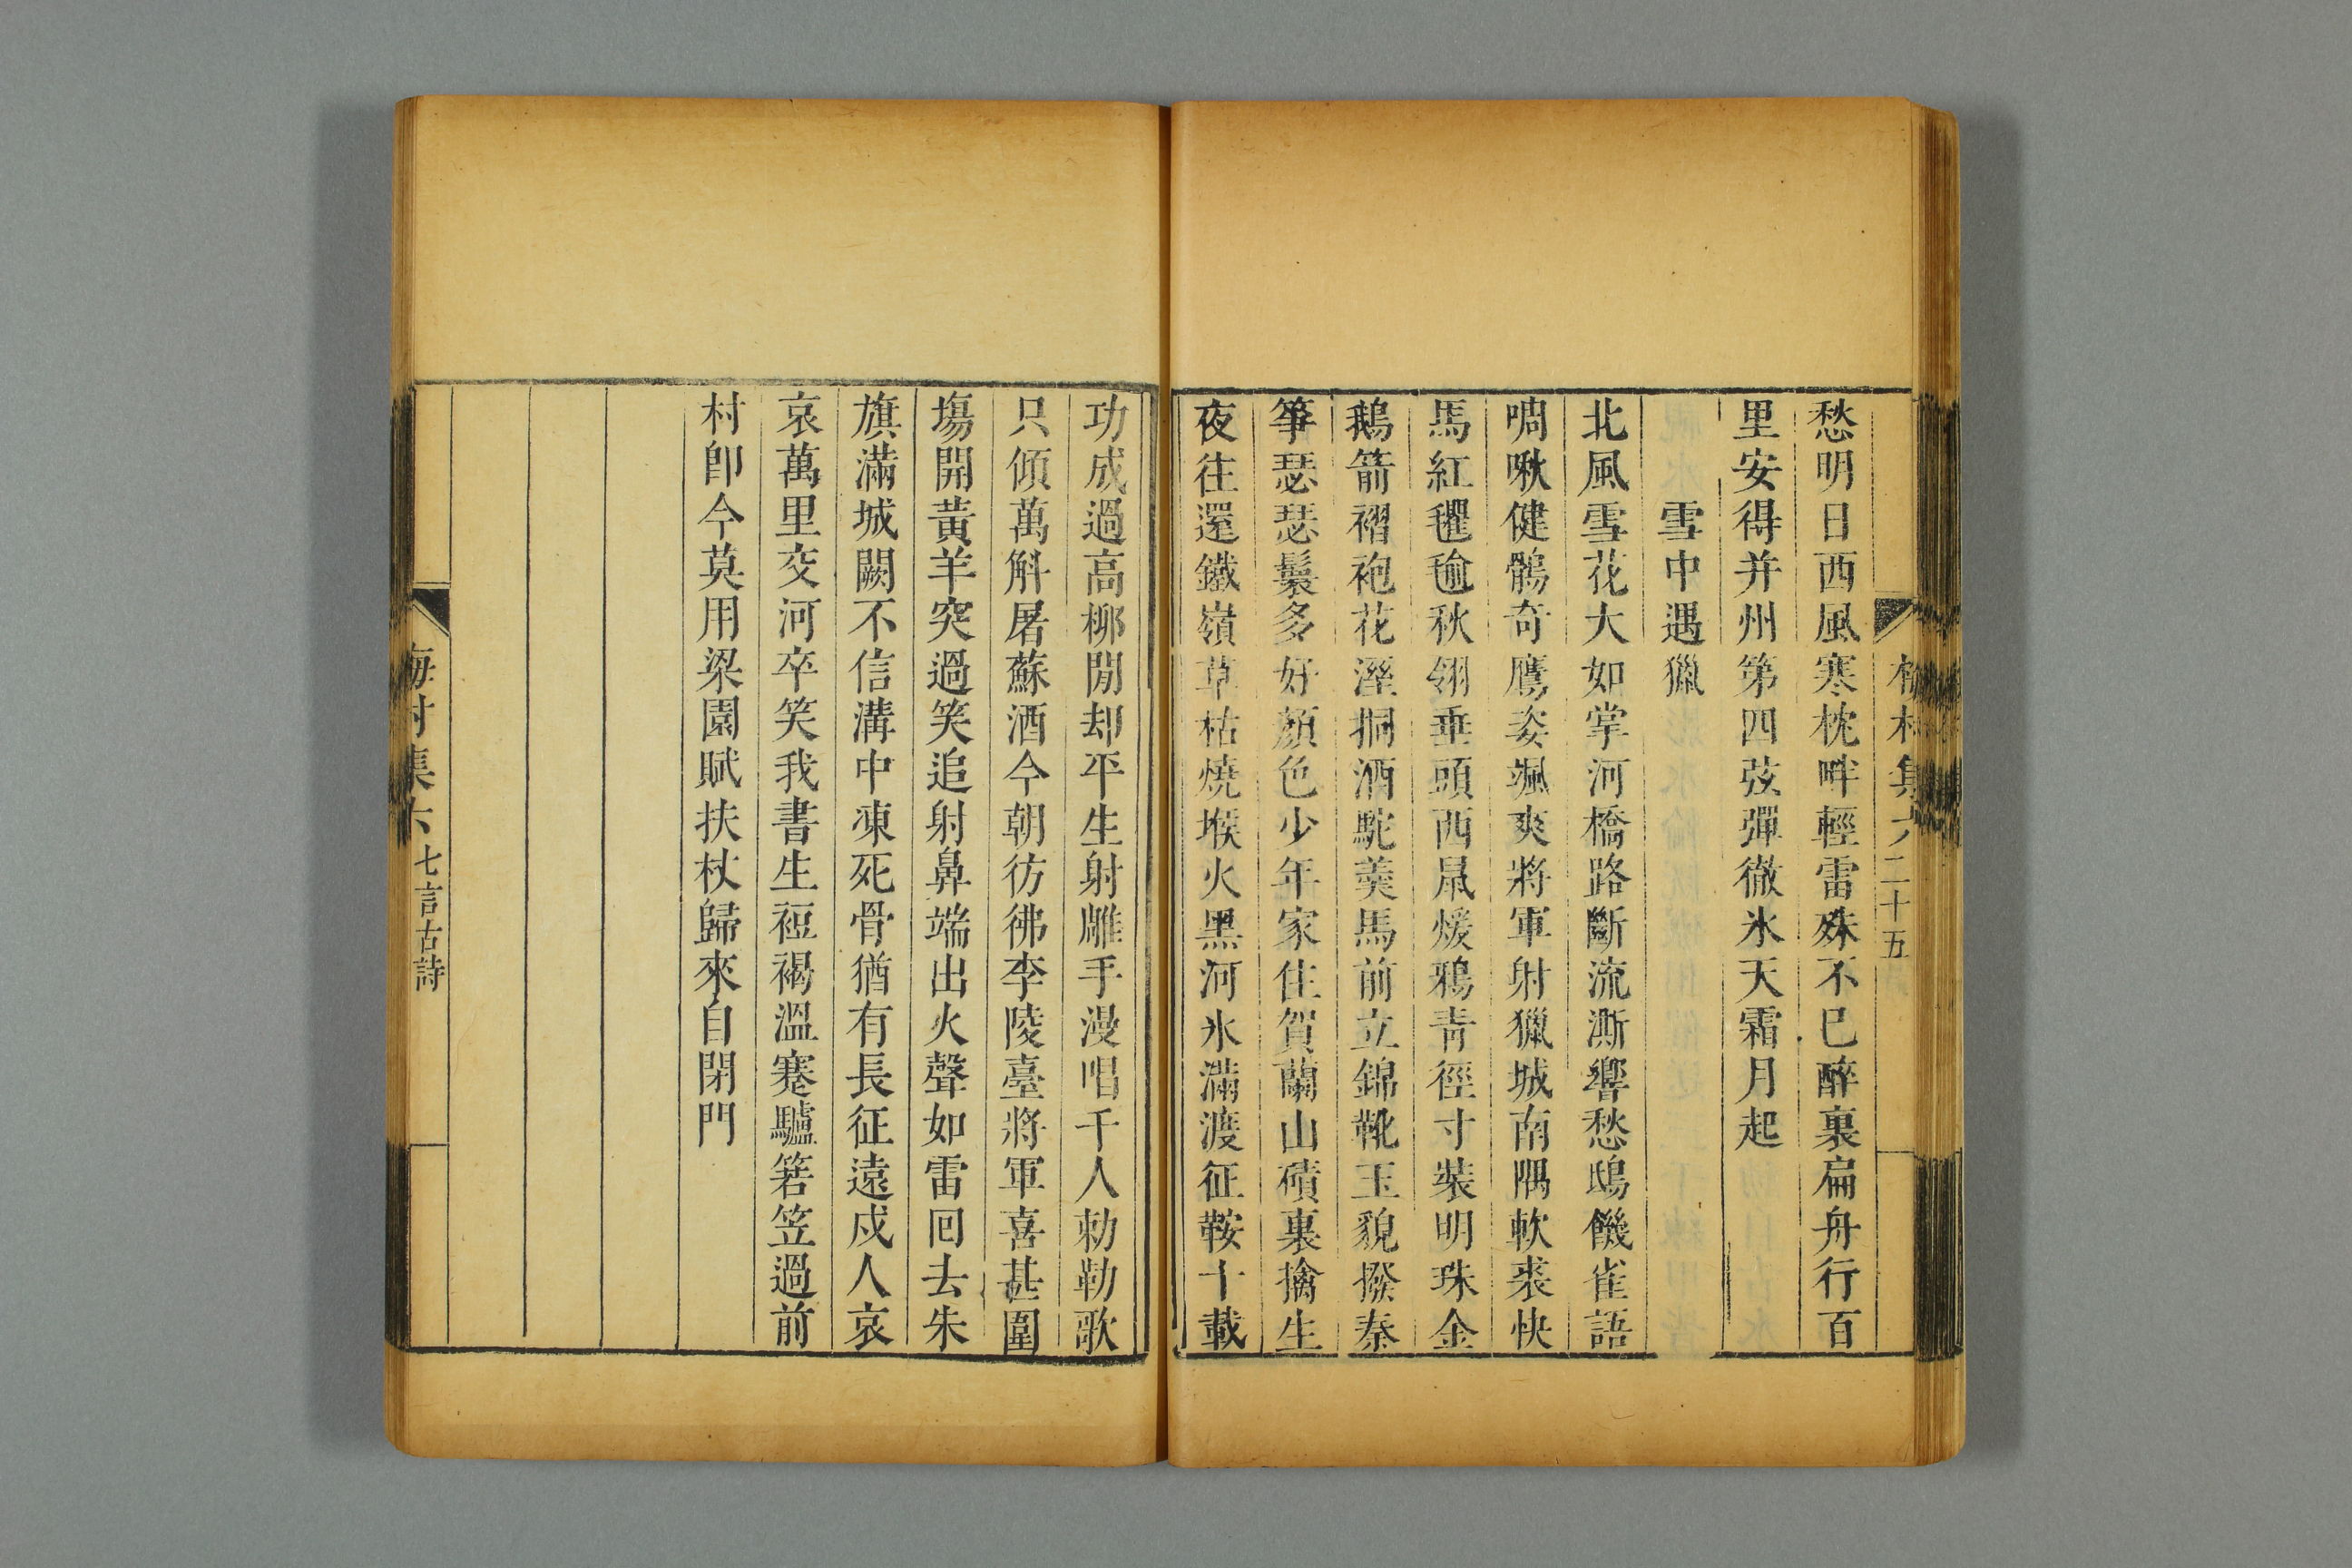 梅村集六 二十五
愁明日西風寒枕畔輕雷殊不已醉裏扁舟行百
里安得并州第四弦彈徹氷天霜月起
雪中遇獵
北風雪花大如掌河橋路斷流澌響愁鴟饑雀語
啁啾健鶻奇鷹姿颯爽將軍射獵城南隅軟裘快
馬紅氍毹秋翎垂頭西鼠煖鴉青徑寸裝明珠金
鵝箭褶袍花溼挏酒駝羹馬前立錦靴玉貌撥秦
箏瑟瑟鬟多好顏色少年家住賀蘭山磧裏擒生
夜往還鐵嶺草枯燒堠火黑河氷滿渡征鞍十載
功成過高柳閒却平生射雕手漫唱千人勅勒歌
只傾萬斛屠蘇酒今朝彷彿李陵臺將軍喜甚圍
塲開黃羊突過笑追射鼻端出火聲如雷回去朱
旗滿城闕不信溝中凍死骨猶有長征遠戍人哀
哀萬里交河卒笑我書生裋褐溫蹇驢箬笠過前
村卽今莫用梁園賦扶杖歸來自閉門
梅村集六 七言古詩